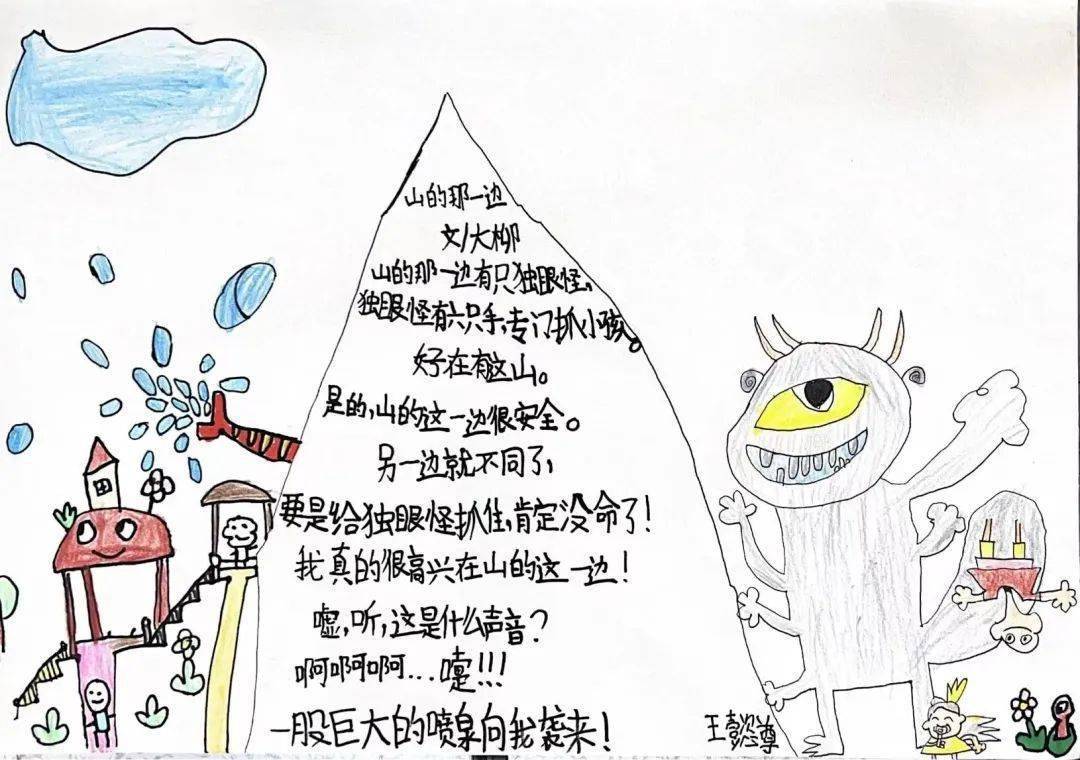 山的那一边
文/大柳
山的那一边有只独眼怪,
独眼怪有六只手,专门抓小孩。
好在有这山。
是的,山的这一边很安全。
另一边就不同了,
要是给独眼怪抓住,肯定没命了!
我真的很高兴在山的这一边!
嘘,听,这是什么声音?
啊啊啊啊...嚏!!!
一股巨大的喷泉向我袭来!
王